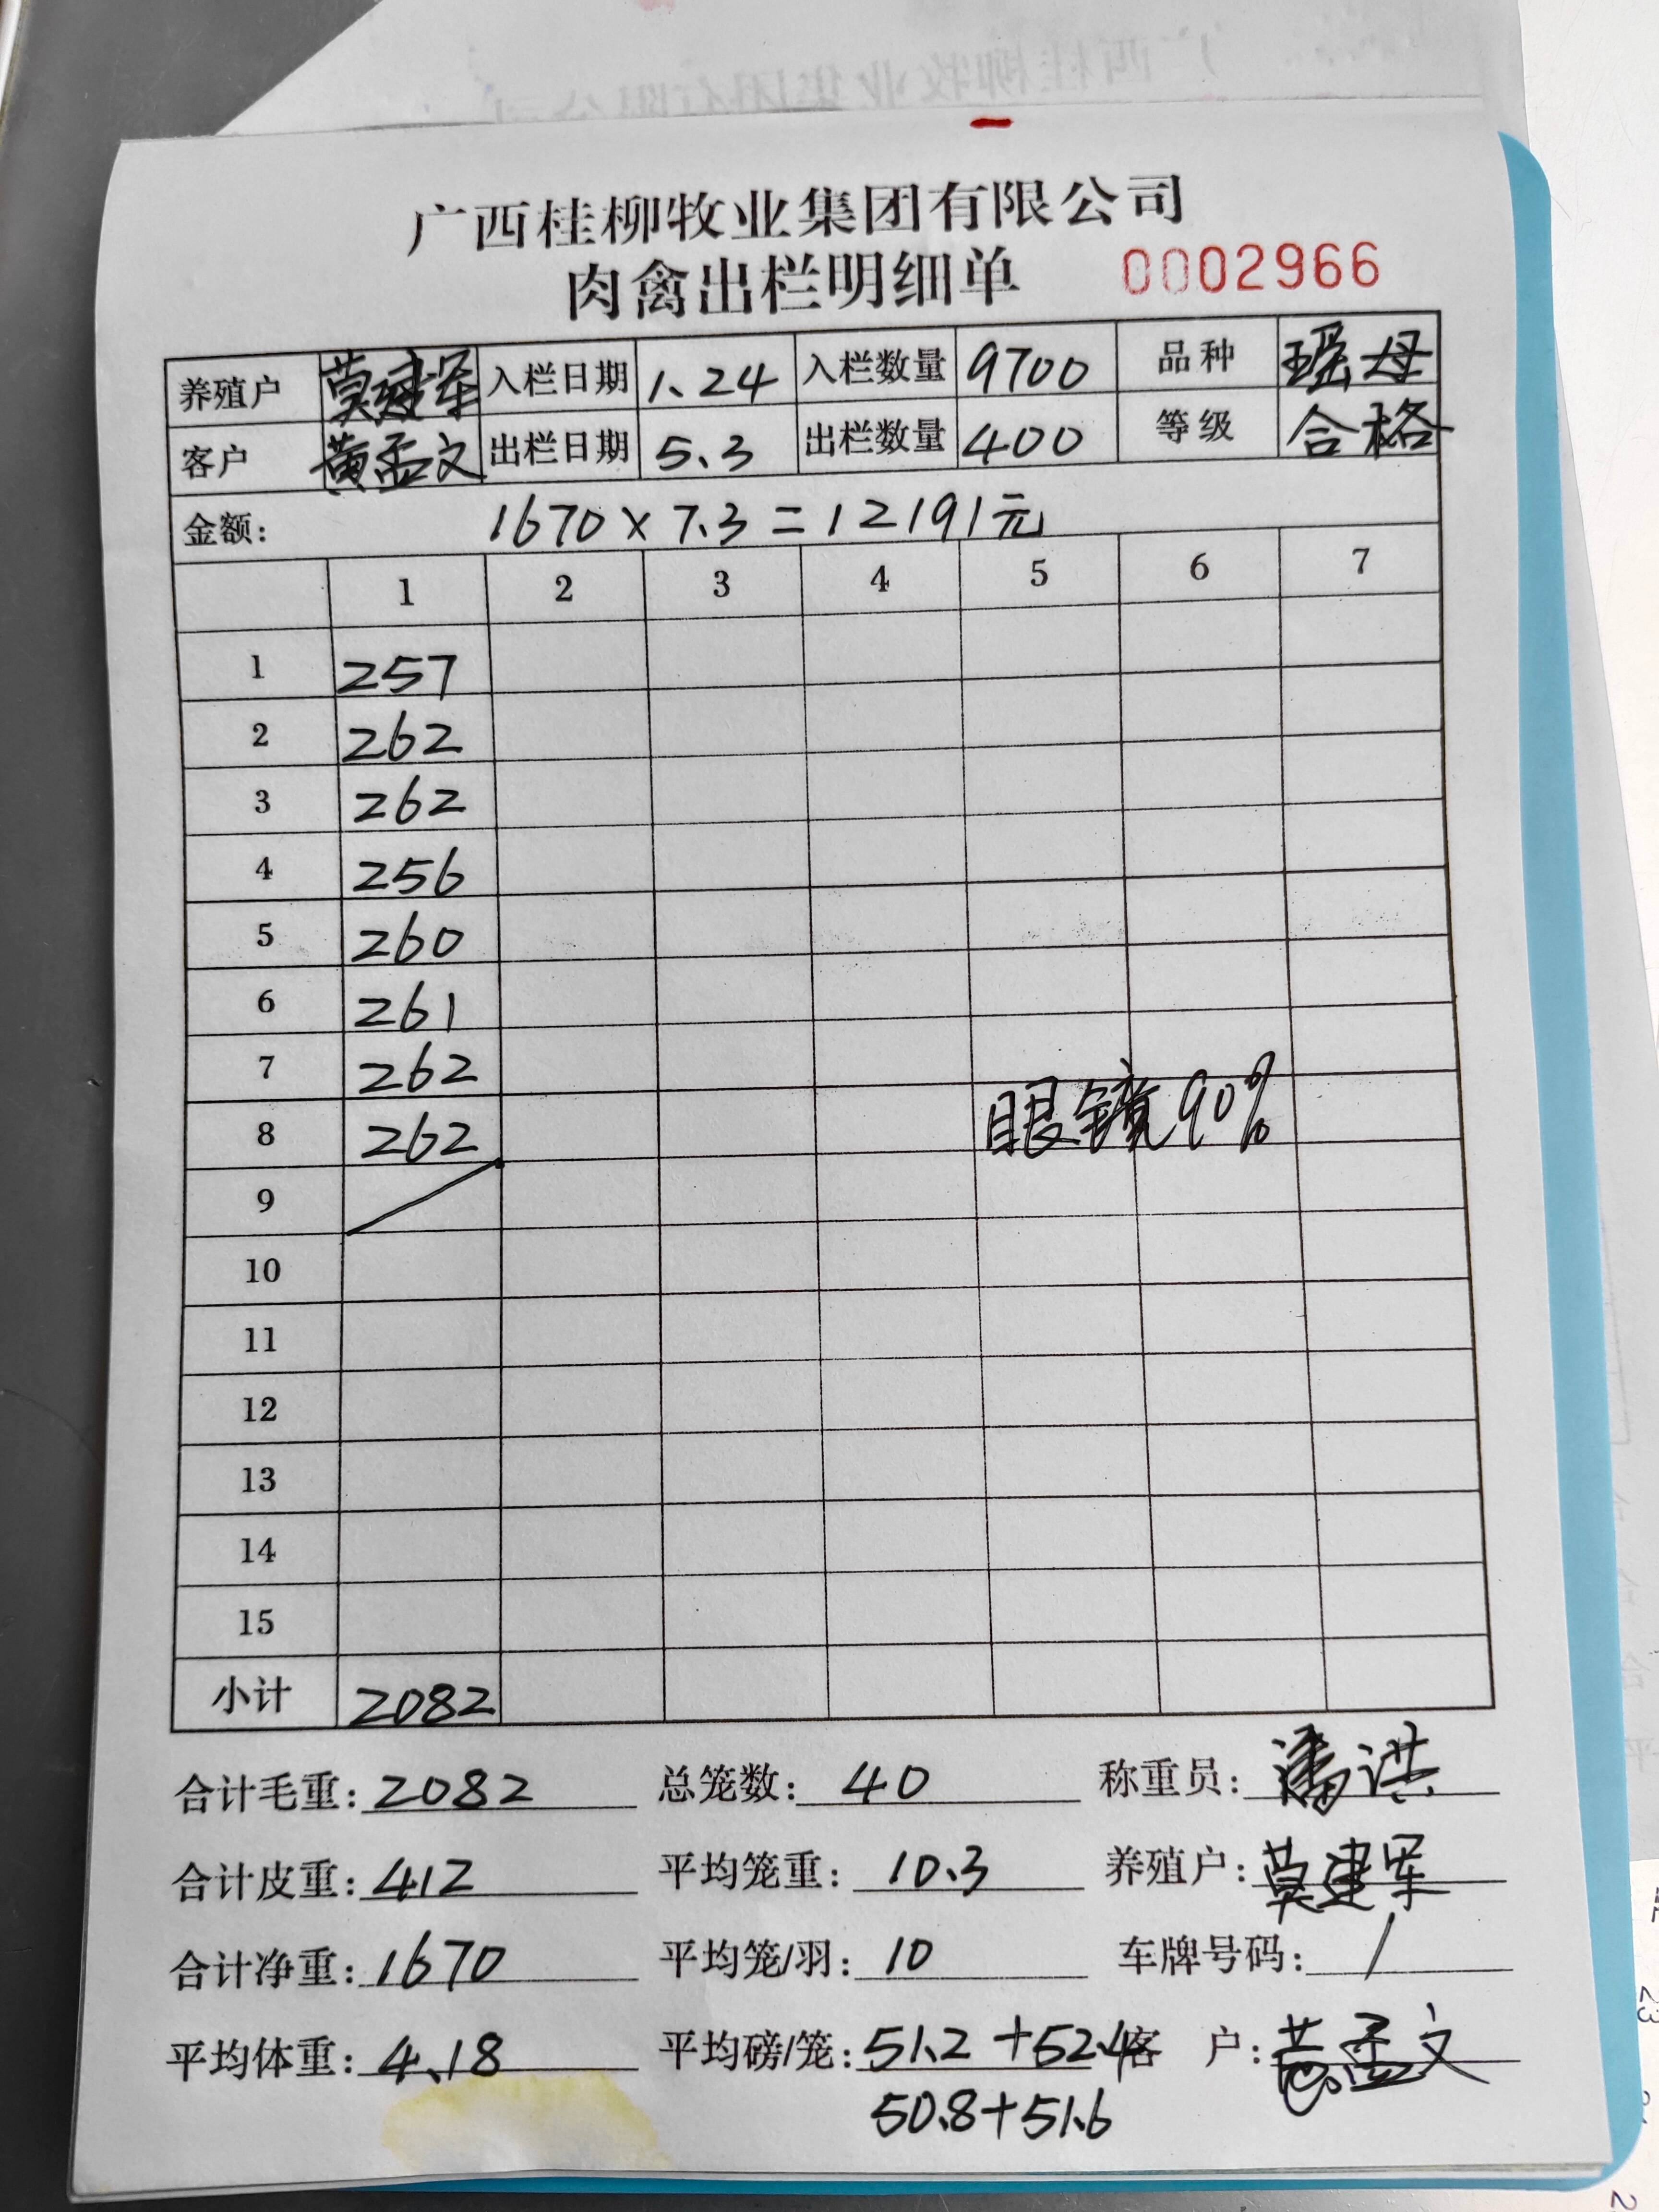 广西桂柳牧业集团有限公司
肉禽出栏明细单 0002966
养殖户 莫建军 入栏日期 1.24 入栏数量 9700 品种 瑶母
客户 黄孟文 出栏日期 5.3 出栏数量 400 等级 合格
金额: 1670×7.3=12191元
1 2 3 4 5 6 7
1 257
2 262
3 262
4 256
5 260
6 261
7 262
8 262 眼镜90%
9
10
11
12
13
14
15
小计 2082
合计毛重: 2082 总笼数: 40 称重员: 潘洪
合计皮重: 412 平均笼重: 10.3 养殖户: 莫建军
合计净重: 1670 平均笼/羽: 10 车牌号码: /
平均体重: 4.18 平均磅/笼: 51.2+52.4 客户: 黄孟文
50.8+51.6